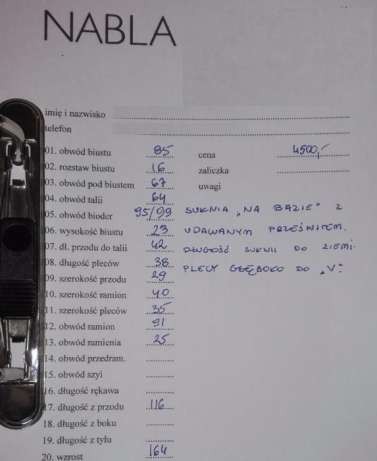 NABLA
imię i nazwisko
telefon
01. obwód biustu 85 cena 4500,-
02. rozstaw biustu 16 zaliczka
03. obwód pod biustem 67 uwagi
04. obwód talii 64
05. obwód bioder 95/99 SUKNIA „NA BAZIE" Z
06. wysokość biustu 23 UDAWANYM PRZEŚWITEM.
07. dł. przodu do talii 42 DŁUGOŚĆ SUKNI DO ZIEMI
08. długość pleców 38 PLECY GŁĘBOKO DO „V".
09. szerokość przodu 29
10. szerokość ramion 40
11. szerokość pleców 35
12. obwód ramion 91
13. obwód ramienia 25
14. obwód przedram.
15. obwód szyi
16. długość rękawa
17. długość z przodu 116
18. długość z boku
19. długość z tyłu
20. wzrost 164